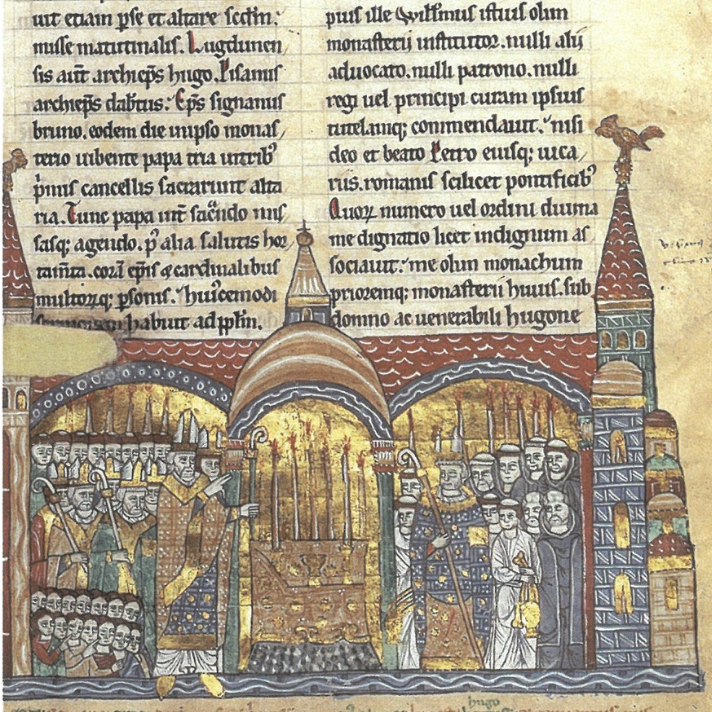 uit etiam p̄se et altare scd̄m:
misse matutinalis. Lugdunen
sis aūt archiep̄s hugo. Pisanus
archiep̄s dabtus: Ep̄s signanus
bruno. eodem die in ipso monas
terio iubente papa tria in trib⁹
p̄mis cancellis sacrarunt alta
ria. Tunc papa int̄ sac̄ndo mis
sasq; agendo. p⁹ alia salutis hor
tam̄ta. corā ep̄is & cardinalibus
multorq; p̱sonis. huiꝰcemodi
habuit ad pp̄lm.
puis ille Willl̄mus istius olim
monasterij institutor. nulli alij
aduocato. nulli patrono. nulli
regi uel principi curam ipsius
tutelamq; commendauit. nisi
deo et beato Petro eiusq; uica
riis. romanis scilicet pontificib⁹
Quorꝝ numero uel ordini diuina
me dignatio licet indignum as
sociauit. me olim monachum
prioremq; monasterii huius. sub
domno ac uenerabili hugone
hugo